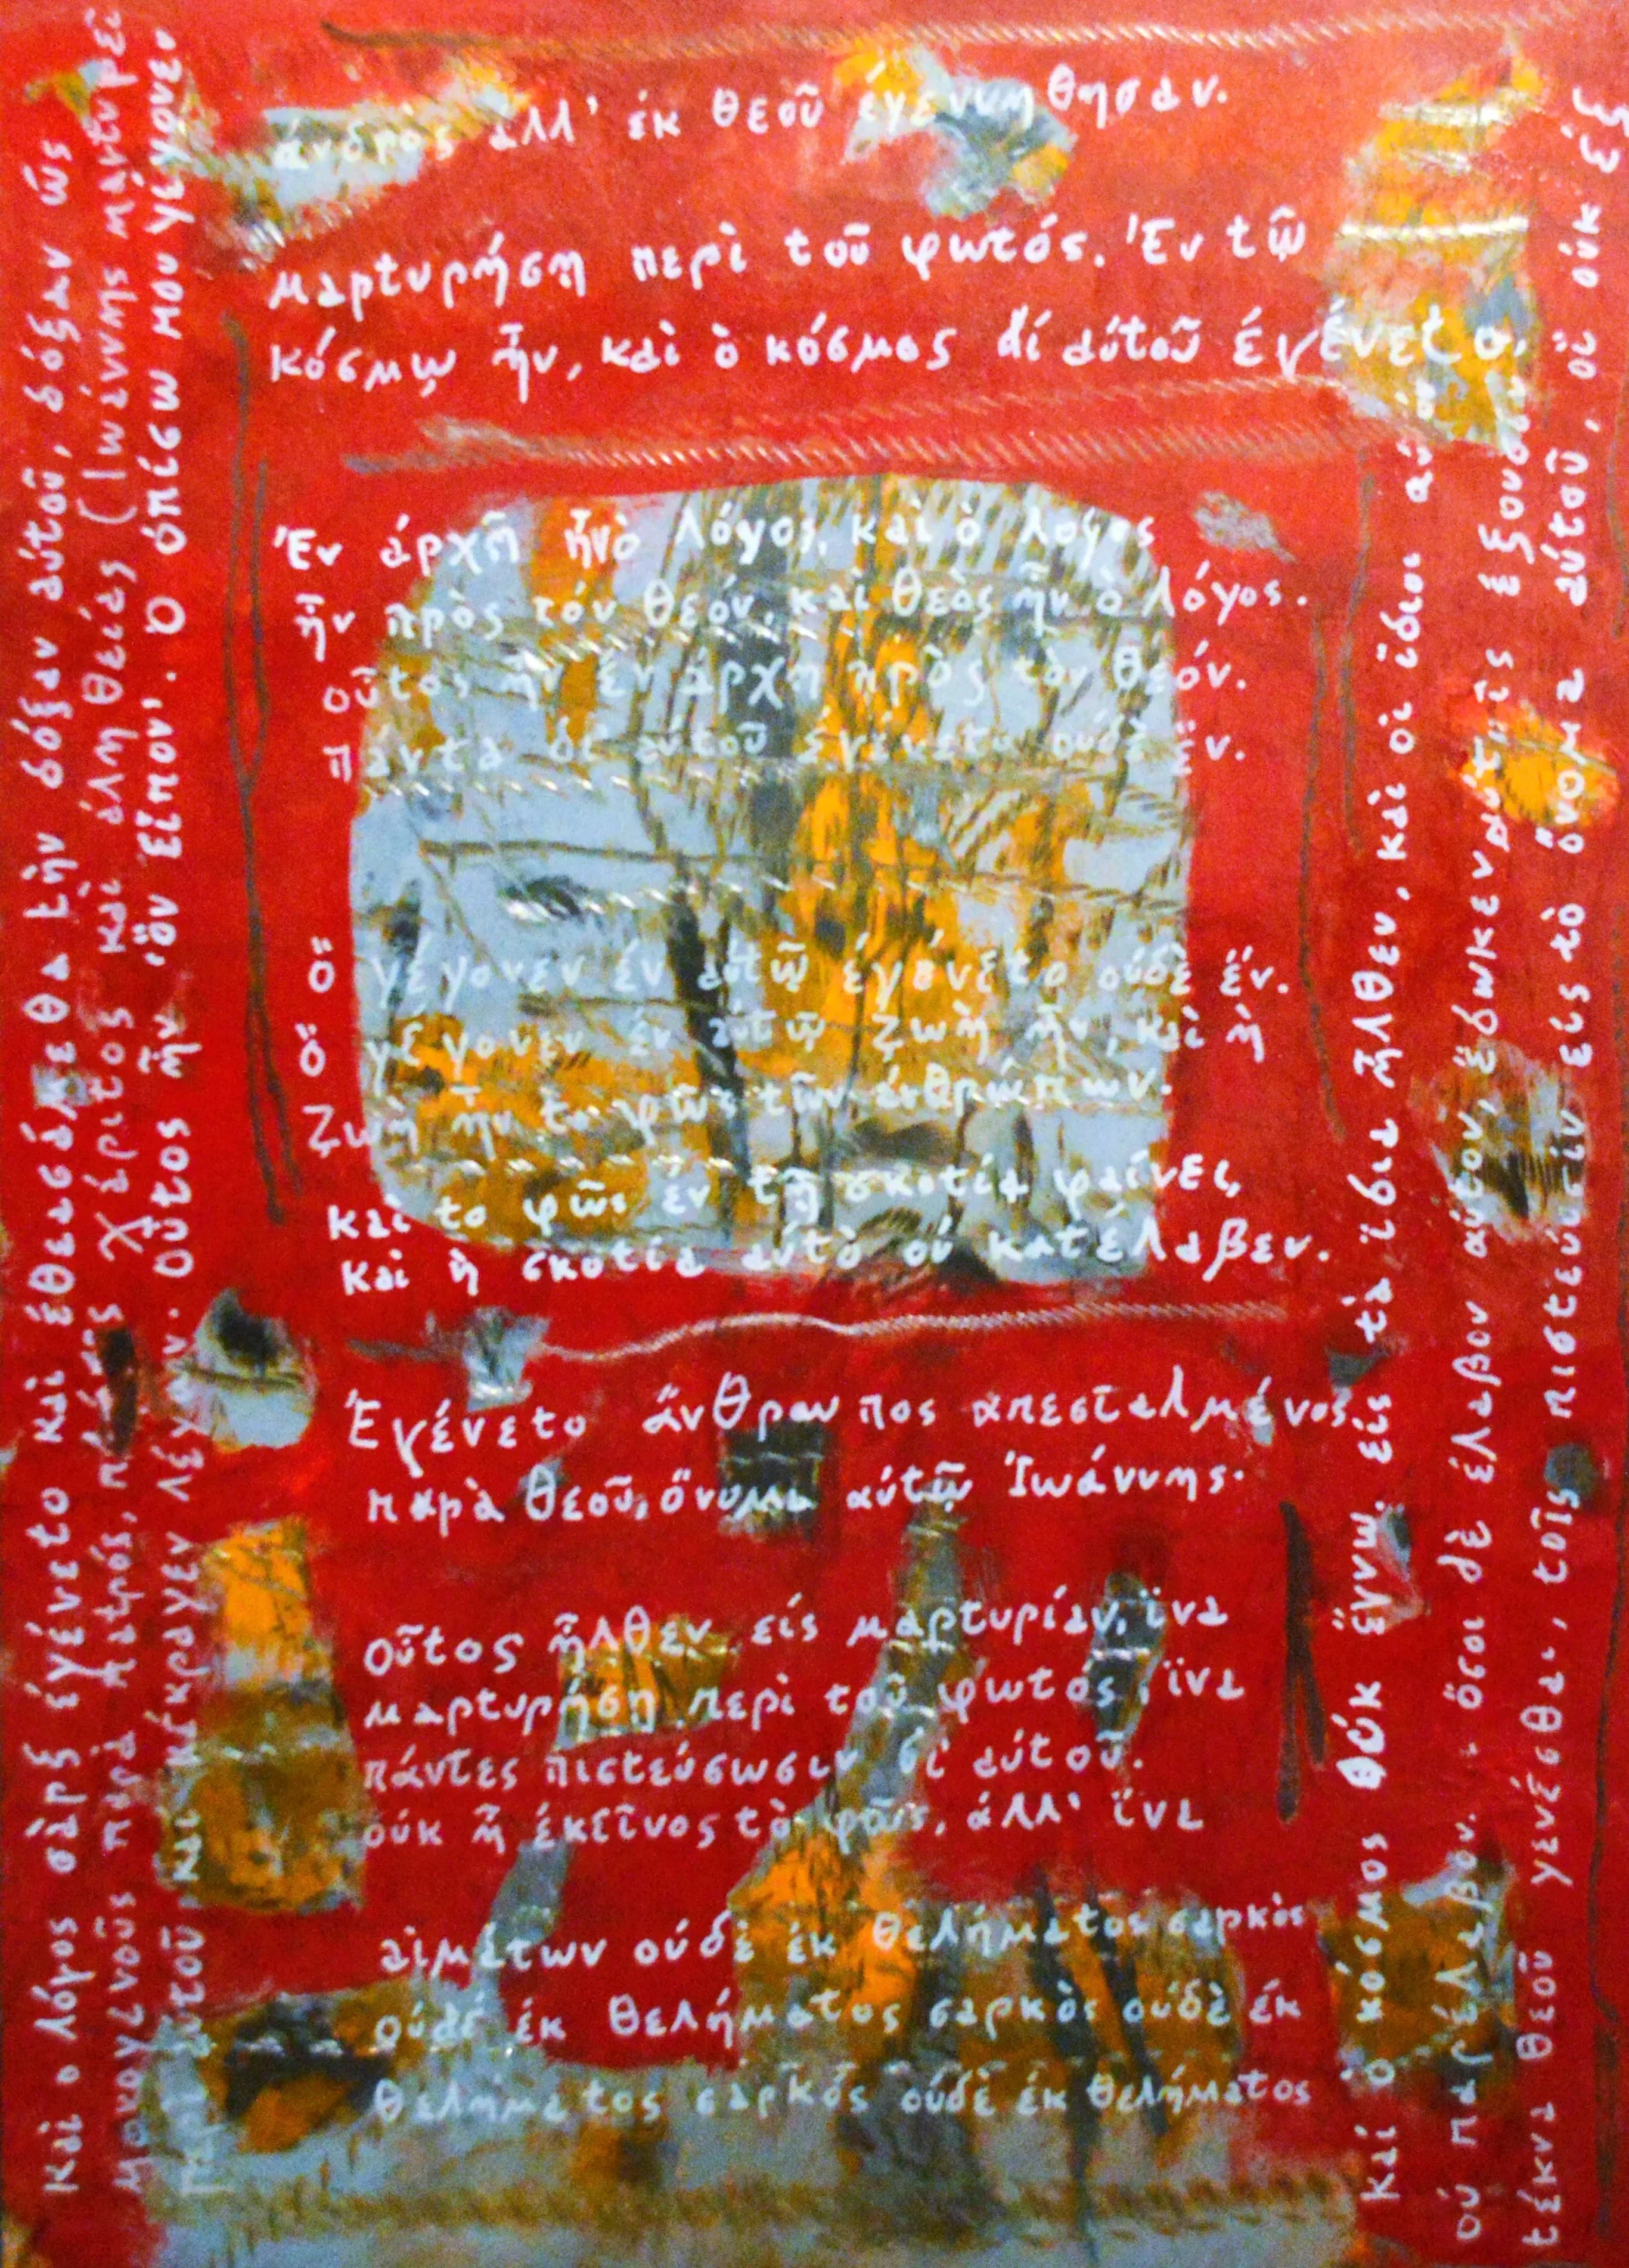 άνδρὸς άλλ' έκ θεοῦ έγεννήθησαν.
μαρτυρήσῃ περὶ τοῦ φωτός. Έν τῷ
κόσμῳ ἦν, καὶ ὁ κόσμος δί αύτοῦ έγένετο,
Έν άρχῆ ἦν ὸ λόγος, καὶ ὸ λογος
ἦν πρὸς τόν θεόν, καί θεὸς ἦν ὸ λόγος.
οὗτος ἦν έν άρχῆ πρὸς τὸν θεόν.
πάντα δί αύτοῦ έγένετο ούδὲ ἕν.
ὅ γέγονεν έν αύτῷ έγένετο ούδὲ ἕν.
ὅ γέγονεν έν αύτῷ ζωὴ ἦν, καὶ ὴ
ζωὴ ἦν το φῶς τῶν άνθρώπων.
καί το φῶς έν τῆ σκοτίᾳ φαίνει,
και ὴ σκοτία αύτὸ ού κατέλαβεν.
Έγένετο ἄνθρωπος απεσταλμένος
παρὰ θεοῦ, ὄνομα αύτῷ Ἰωάννης·
οὗτος ἦλθεν είς μαρτυρίαν, ἵνα
μαρτυρήση περὶ τοῦ φωτός, ἵνα
πάντες πιστεύσωσιν δί αύτοῦ.
ούκ ἦ έκεῖνος τὸ φῶς, άλλ' ἵνα
αἱμάτων ούδὲ έκ θελήματος σαρκὸς
ούδέ έκ θελήματος σαρκὸς ούδὲ έκ
θελήματος σαρκός ούδὲ έκ θελήματος
καὶ ο λόγος σὰρξ έγένετο καὶ έθεασάμεθα τὴν δόξαν αύτοῦ, δόξαν ὡς
μονογενοῦς παρὰ πατρός, πλήρης χάριτος καὶ άληθείας (Ιωάννης μαρτυρεῖ
περὶ αύτοῦ καὶ κέκραγεν λέγων. οὗτος ἦν 'ὃν εἶπον'. Ο όπίσω μου
καί ὁ κόσμος ούκ ἔγνω. είς τὰ ἴδια ἦλθεν, καὶ οἱ ἴδιοι
ού παρέλαβον. ὅσοι δὲ έλαβον αύτον, ἔδωκεν αύτοῖς έξουσίαν
τέκνα θεοῦ γενέσθαι, τοῖς πιστεύουσιν εἰς τὸ ὄνομα αύτοῦ, οἳ ούκ έξ